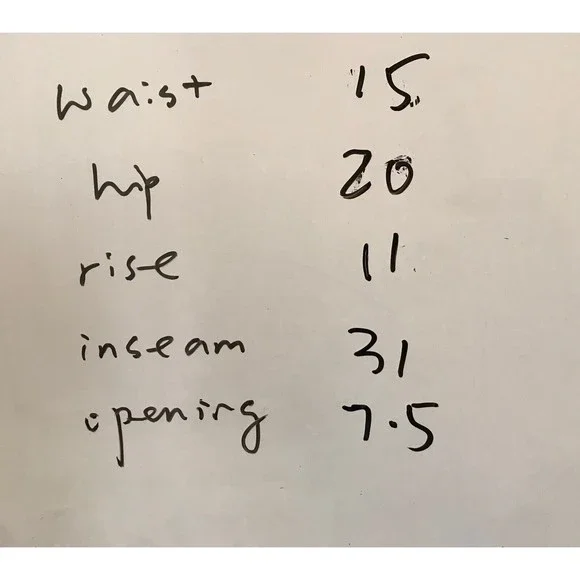 waist 15
hip 20
rise 11
inseam 31
opening 7.5